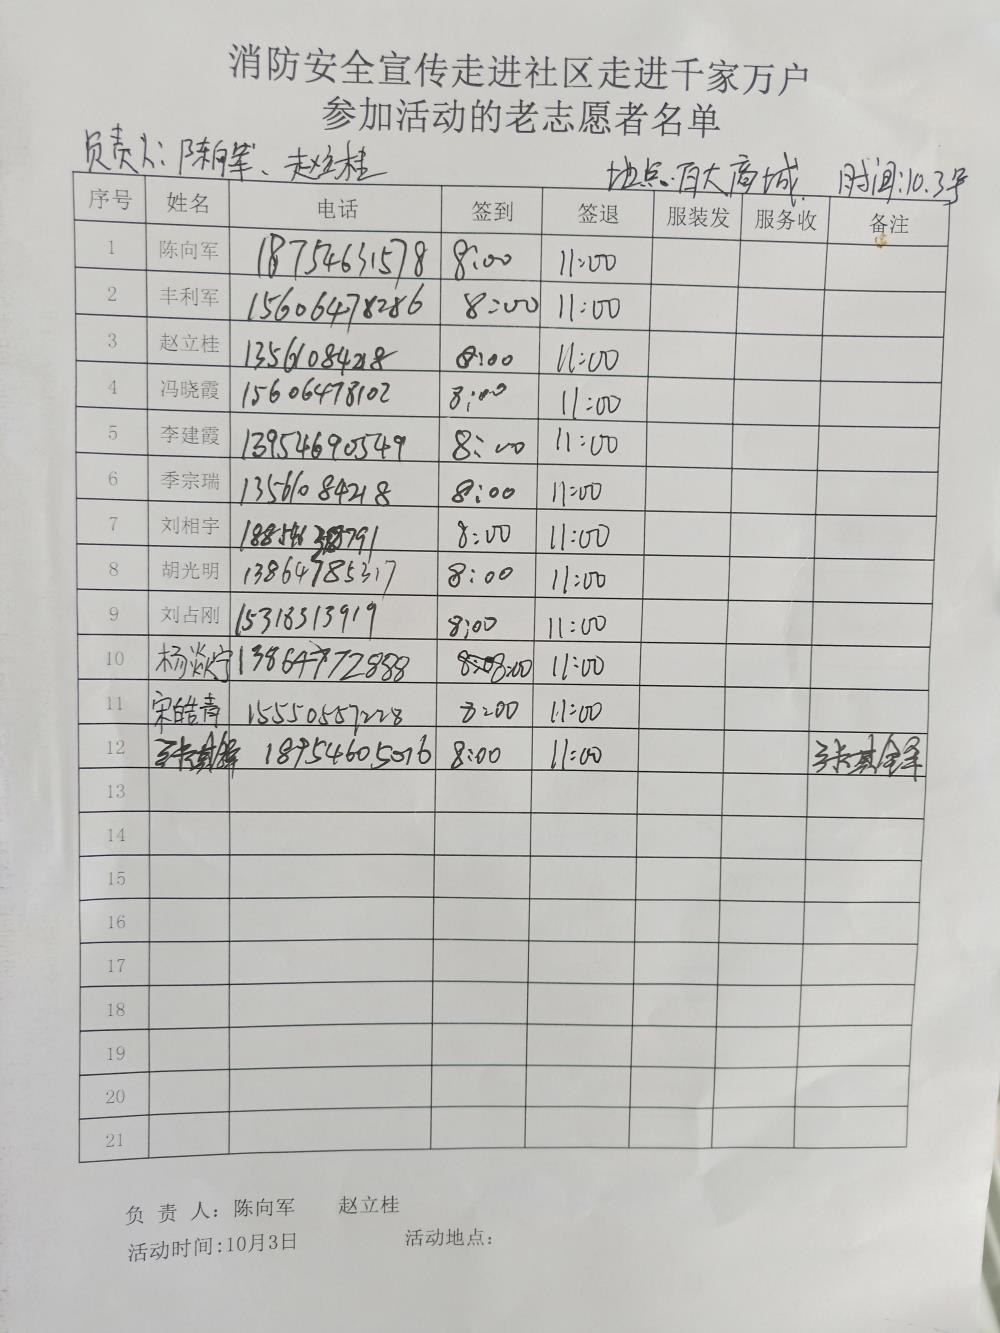 消防安全宣传走进社区走进千家万户
参加活动的老志愿者名单
负责人:陈向军、赵立桂 地点:百大商城 时间:10.3号
序号 姓名 电话 签到 签退 服装发 服务收 备注
1 陈向军 18754631578 8:00 11:00
2 丰利军 15606478286 8:00 11:00
3 赵立桂 13561084218 8:00 11:00
4 冯晓霞 15606478102 8:00 11:00
5 李建霞 13954690549 8:00 11:00
6 季宗瑞 13561084218 8:00 11:00
7 刘相宇 8:00 11:00
8 胡光明 13864785317 8:00 11:00
9 刘占刚 15318313919 8:00 11:00
10 13864772888 8:00 11:00
11 宋皓青 15550557228 8:00 11:00
12 18954605076 8:00 11:00
13
14
15
16
17
18
19
20
21
负 责 人: 陈向军 赵立桂
活动时间:10月3日 活动地点: